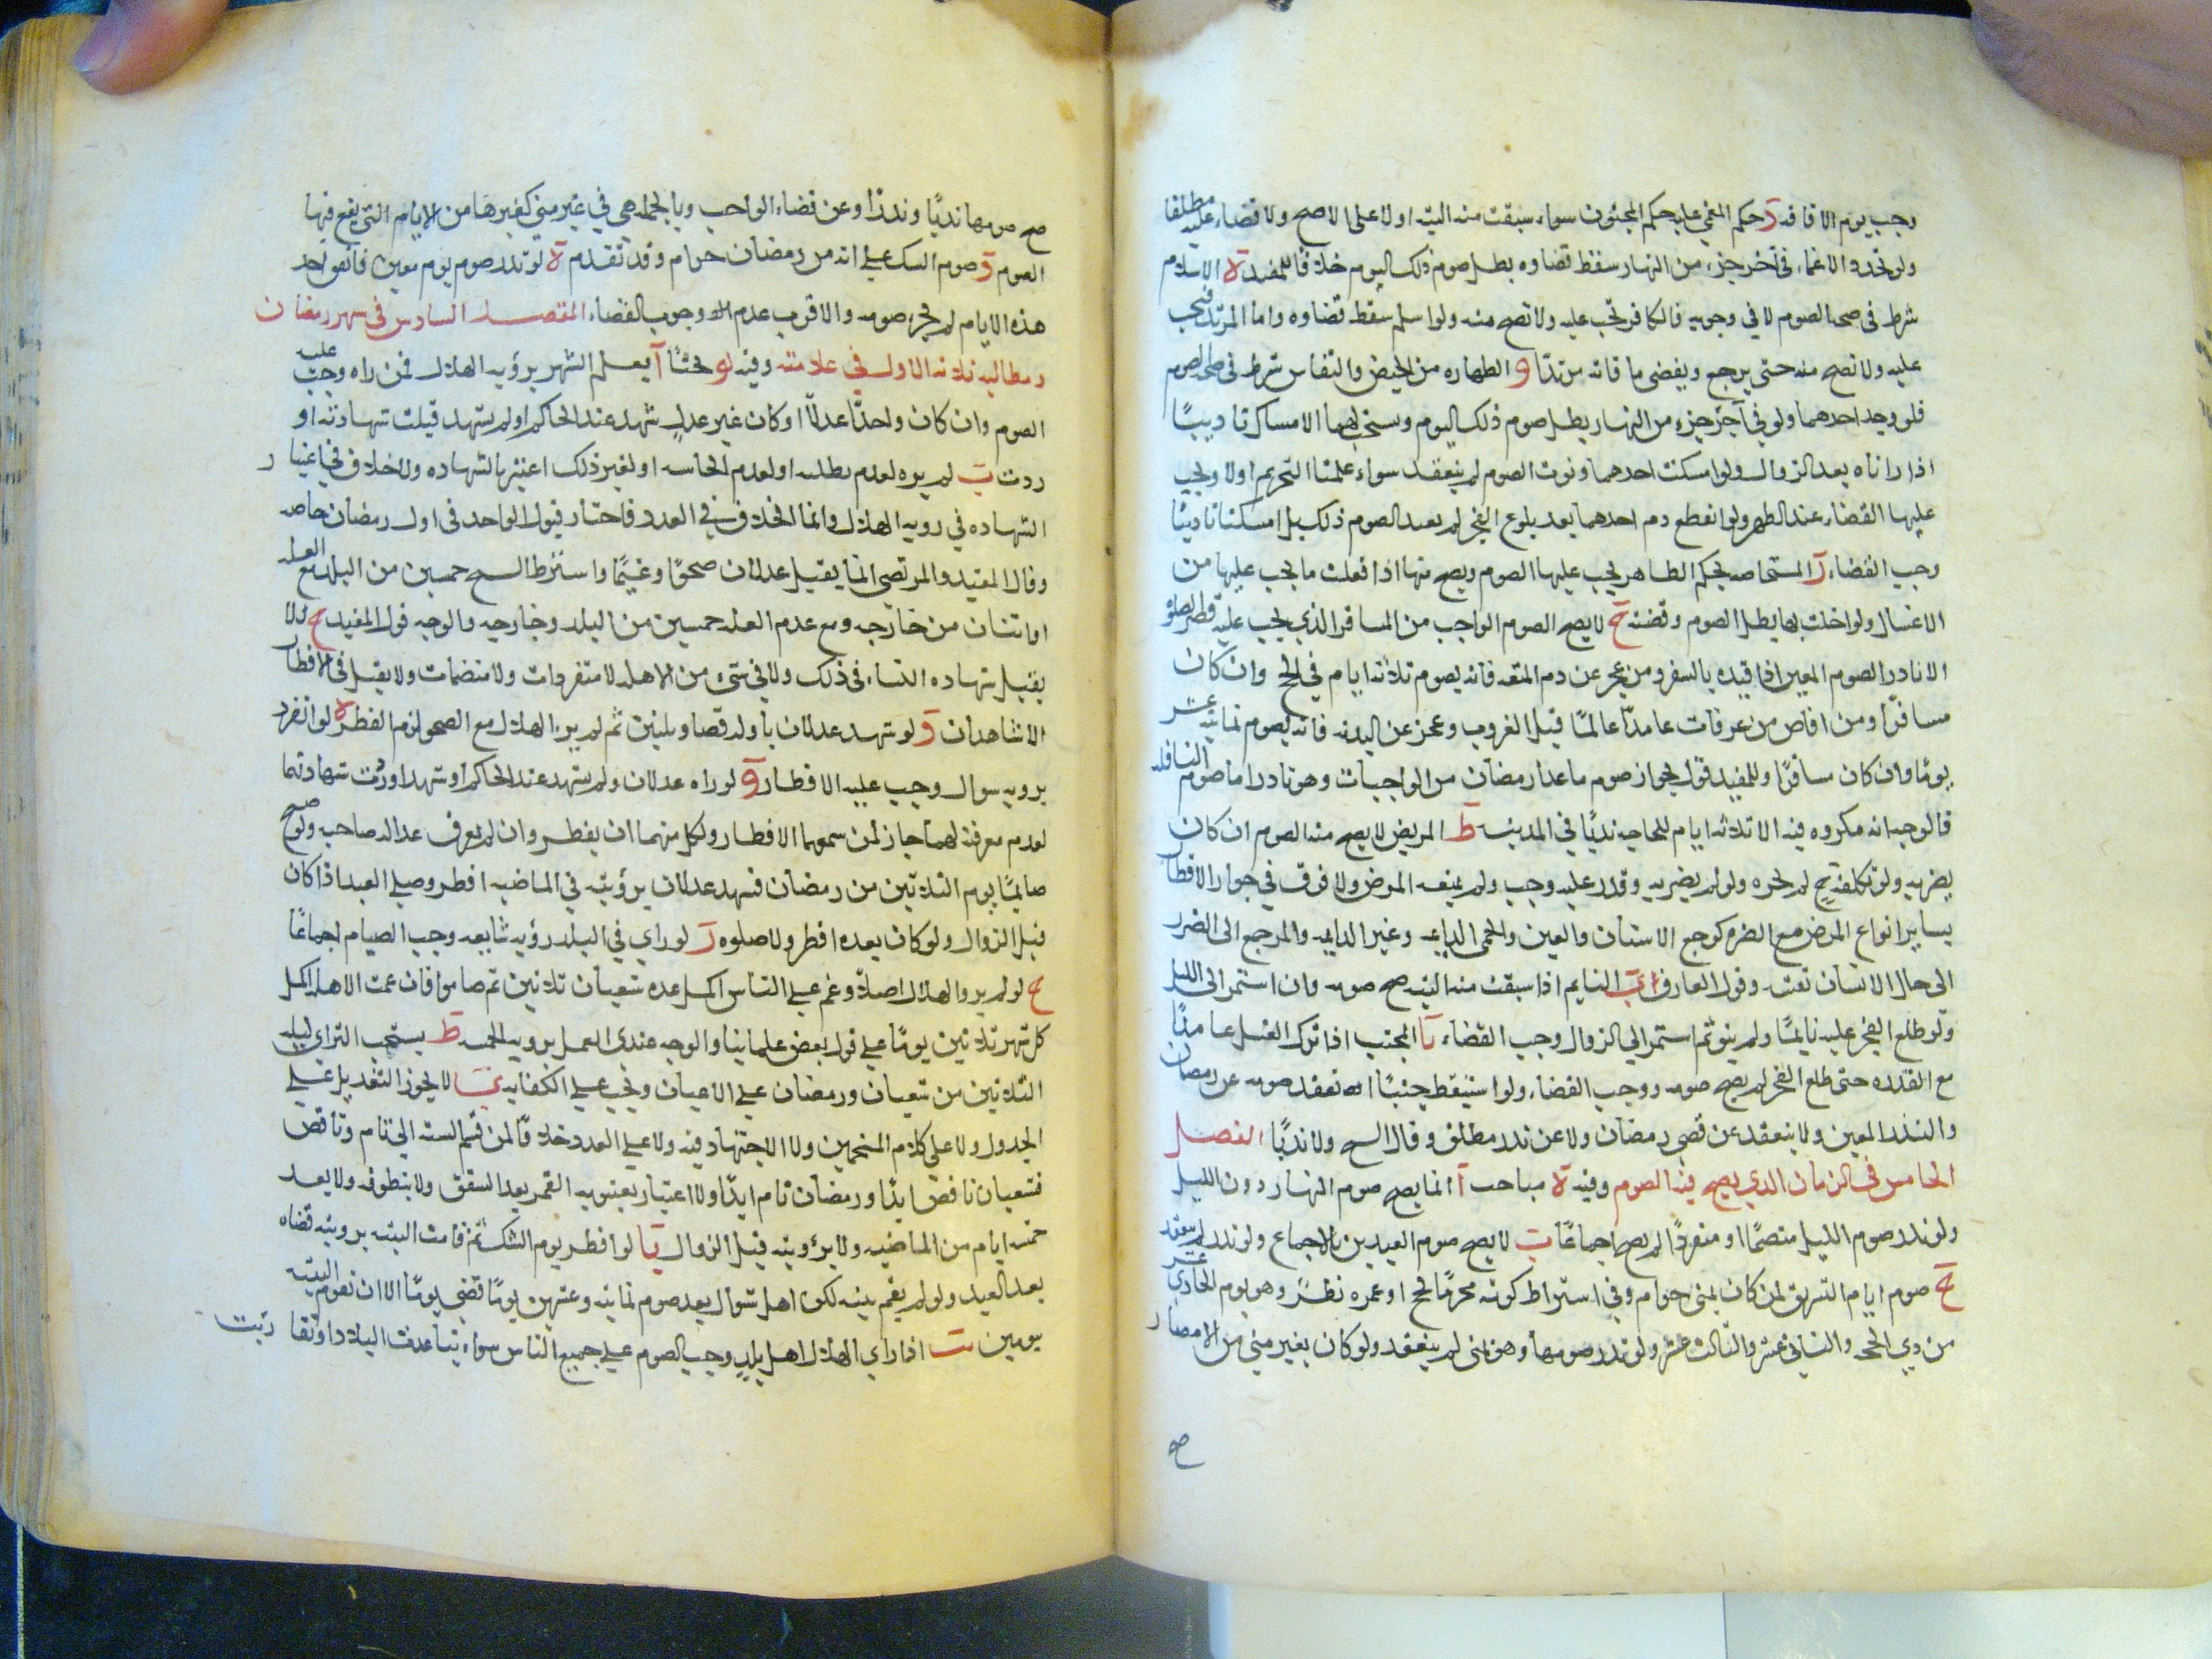 وجب يوم الافاقه د حكم المغمى عليه حكم المجنون سواء سبقت منه النيه اولا على الاصح ولا قضاء عليه مطلقا
ولو تجدد الاغماء فى آخر جزء من النهار سقط قضاوه بطل صوم ذلك اليوم خلافا للمفيد ة الاسلام
شرط فى صحه الصوم لا في وجوبه فالكافر يجب عليه ولا تصح منه ولو اسلم سقط قضاوه واما المرتد فيجب
عليه ولا تصح منه حتى يرجع ويقضى ما فاته مرتدا و الطهاره من الحيض والنفاس شرط فى صحه الصوم
فلو وجد احدهما ولو في آخر جزء من النهار بطل صوم ذلك اليوم ويستحب لهما الامساك تاديبًا
اذا راتاه بعد الزوال ولو امسكت احدهما ونوت الصوم لم ينعقد سواء علمتا التحريم اولا ويجب
عليهما القضاء عند الطهر ولو انقطع دم احدهما بعد طلوع الفجر لم يصح الصوم ذلك بل امسكتا تاديبًا
وجب القضاء ز المستحاضه بحكم الطاهر يجب عليها الصوم ويصح منها اذا فعلت ما يجب عليها من
الاغسال ولو اخلت بها بطل الصوم وقضته ح لا يصح الصوم الواجب من المسافر الذي يجب عليه قصر الصلوة
الا نادر الصوم المعين اذا قيده بالسفر ومن عجز عن دم المتعه فانه يصوم ثلاثه ايام في الحج وان كان
مسافرًا ومن افاض من عرفات عامدًا عالمًا قبل الغروب وعجز عن البدنه فانه يصوم ثمانيه عشر
يومًا وان كان مسافرًا وللمفيد قول بجواز صوم ما عدا رمضان من الواجبات وهو نادر اما صوم النافله
فالوجه انه مكروه فيه الا ثلاثه ايام للحاجه ندبًا في المدينه ط المريض لا يصح منه الصوم ان كان
يضر به ولو تكلفه لم يجزه ولو لم يضر به وقدر عليه وجب ولم يمنعه المرض ولا فرق في جواز الافطار
بساير انواع المرض مع الضرر كوجع الاسنان والعين والحمى الدايمه وغير الدايمه والمرجع الى الضرر
الى حال الانسان نفسه وقول العارف ى النايم اذا سبقت منه النيه صح صومه وان استمر الى الليل
ولو طلع الفجر عليه نايمًا ولم ينو ثم استمر الي الزوال وجب القضاء يا المجنب اذا ترك الغسل عامدًا
مع القدره حتى طلع الفجر لم يصح صومه ووجب القضاء ولو استيقظ جنبًا لم ينعقد صومه عن رمضان
والنذر المعين ولا ينعقد عن قضى رمضان ولا عن نذر مطلق وقال الشيخ ولا ندبًا الفصل
الخامس فى الزمان الذي يصح فيه الصوم وفيه ة مباحث آ انما يصح صوم النهار دون الليل
ولو نذر صوم الليل منضمًا او منفردًا لم يصح اجماعًا ب لا يصح صوم العيدين بالاجماع ولو نذر لم ينعقد
ج صوم ايام التشريق لمن كان بمنى حرام وفي اشتراط كونه محرمًا لحج او عمره نظر وهو يوم الحادي عشر
من ذي الحجه والثانى عشر والثالث عشر ولو نذر صومها وهو بمنى لم ينعقد ولو كان بغير منى من الامصار
صح
صح صومها ندبًا ونذرًا وعن قضاء الواجب وبالجمله هي في غير منى كغيرها من الايام التي يقع فيها
الصوم د صوم الشك على انه من رمضان حرام وقد تقدم ة لو نذر صوم يوم معين فاتفق احد
هذه الايام لم يجز صومه والاقرب عدم وجوب القضاء المقصد السادس فى شهر رمضان
ومطالبه ثلاثه الاول في علامته وفيه يو بحثًا آ يعلم الشهر برؤيه الهلال فمن راه وجب عليه
الصوم وان كان واحدًا عدلًا او كان غير عدل شهد عند الحاكم او لم يشهد قبلت شهادته او
ردت ب لم يره لعدم تطلبه او لعدم الحاسه او لغير ذلك اعتبر بالشهاده ولا خلاف في اعتبار
الشهاده في رويه الهلال وانما الخلاف في العدد فاختار قبول الواحد فى اول رمضان خاصه
وقال المفيد والمرتضى انما يقبل عدلان صحوًا وغيمًا واشترط الشيخ خمسين من البلد مع العله
او اثنان من خارجه ومع عدم العله خمسين من البلد وخارجه والوجه قول المفيد ج لا
يقبل شهاده النساء فى ذلك ولا فى شيء من الاهله لا منفردات ولا منضمات ولا يقبل فى الافطار
الا شاهدان د لو شهد عدلان باوله فصاموا ثلثين ثم لم ير الهلال مع الصحو لزم الفطر ة لو انفرد
برويه شوال وجب عليه الافطار و لو راه عدلان ولم يشهد عند الحاكم او شهدا وردت شهادتهما
لعدم معرفته لهما جاز لمن سمعهما الافطار ولكل منهما ان يفطر وان لم يعرف عداله صاحبه ولو اصبح
صايمًا يوم الثلاثين من رمضان فشهد عدلان برؤيته في الماضيه افطر وصلى العيد اذا كان
قبل الزوال ولو كان بعده افطر ولا صلوه ز لو راي في البلد رؤيه شايعه وجب الصيام اجماعًا
ح لو لم يروا الهلال اصلًا وغم على الناس اكمل عده شعبان ثلاثين ثم صاموا فان غمت الاهله اكمل
كل شهر ثلاثين يومًا على قول بعض علماينا والوجه عندى العمل برويه الخمسه ط يستحب الترآي ليله
الثلاثين من شعبان ورمضان على الاعيان ويجب على الكفايه ى لا يجوز التعويل على
الجدول ولا على كلام المنجمين ولا الاجتهاد فيه ولا على العدد خلافًا لمن قسم السنه الى تام وناقص
فشعبان ناقص ابدًا ورمضان تام ابدًا ولا اعتبار بغيبوبه القمر بعد الشفق ولا بتطوقه ولا بعد
خمسه ايام من الماضيه ولا برؤيته قبل الزوال يا لو افطر يوم الشك ثم قامت البينه برويته قضاه
بعد العيد ولو لم يقم بينه لكن اهل شوال بعد صوم ثمانيه وعشرين يومًا قضى يومًا الا ان تقوم البينه
بيومين يب اذا راي الهلال اهل بلد وجب الصوم على جميع الناس سواء تباعدت البلاد او تقاربت